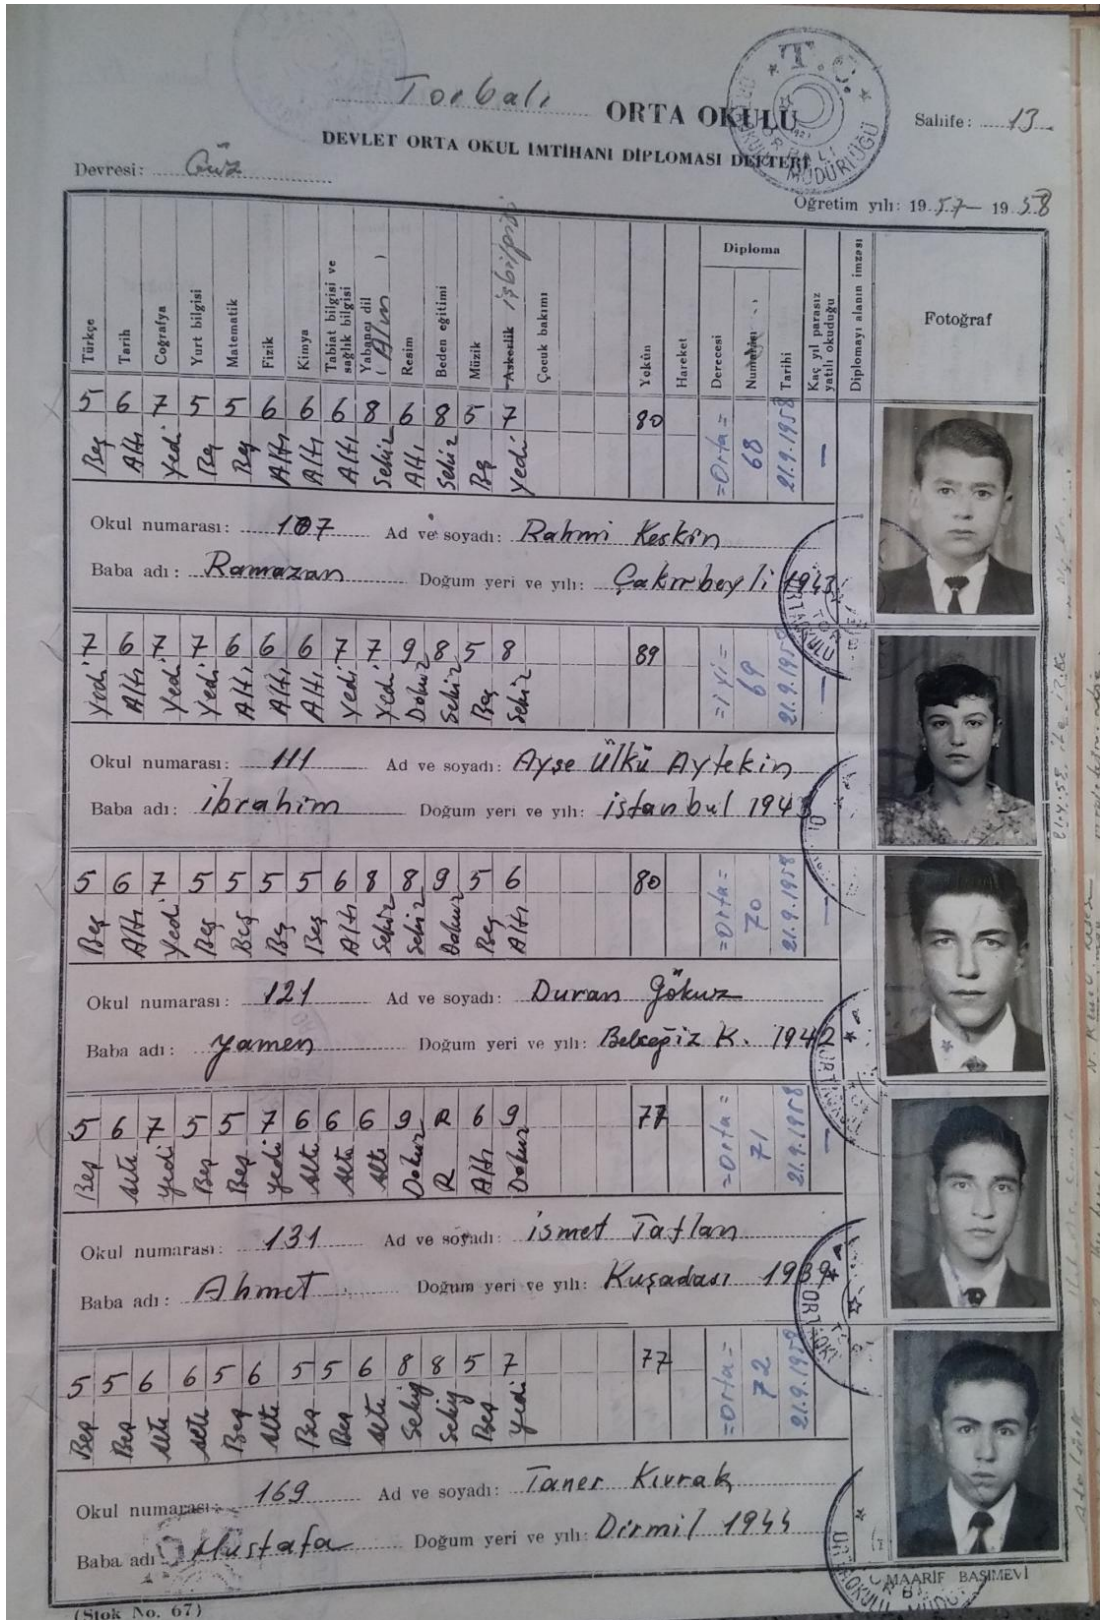 Torbalı ORTA OKULU
Sahife: 13
DEVLET ORTA OKUL İMTİHANI DİPLOMASI DEFTERİ
Devresi: Güz
Öğretim yılı: 1957 - 1958
Türkçe
Tarih
Coğrafya
Yurt bilgisi
Matematik
Fizik
Kimya
Tabiat bilgisi ve sağlık bilgisi
Yabancı dil (Alm)
Resim
Beden eğitimi
Müzik
Askerlik işbilgisi
Çocuk bakımı
Yekûn
Hareket
Diploma
Derecesi
Numarası
Tarihi
Kaç yıl parasız yatılı okuduğu
Diplomayı alanın imzası
Fotoğraf
5 6 7 5 5 6 6 6 8 6 8 5 7 80 =Orta= 68 21.9.1958 —
Beş Altı Yedi Beş Beş Altı Altı Altı Sekiz Altı Sekiz Beş Yedi
Okul numarası: 107 Ad ve soyadı: Rahmi Keskin
Baba adı: Ramazan Doğum yeri ve yılı: Çakırbeyli 1943
7 6 7 7 6 6 6 7 7 9 8 5 8 89 =iyi= 69 21.9.1958 —
Yedi Altı Yedi Yedi Altı Altı Altı Yedi Yedi Dokuz Sekiz Beş Sekiz
Okul numarası: 111 Ad ve soyadı: Ayşe Ülkü Aytekin
Baba adı: ibrahim Doğum yeri ve yılı: istanbul 1943
5 6 7 5 5 5 5 6 8 8 9 5 6 80 =Orta= 70 21.9.1958 —
Beş Altı Yedi Beş Beş Beş Beş Altı Sekiz Sekiz Dokuz Beş Altı
Okul numarası: 121 Ad ve soyadı: Duran Gökuz
Baba adı: Yamen Doğum yeri ve yılı: K. 1942
5 6 7 5 5 7 6 6 6 9 R 6 9 77 =Orta= 71 21.9.1958 —
Beş Altı Yedi Beş Beş Yedi Altı Altı Altı Dokuz R Altı Dokuz
Okul numarası: 131 Ad ve soyadı: ismet Taflan
Baba adı: Ahmet Doğum yeri ve yılı: Kuşadası 1939
5 5 6 6 5 6 5 5 6 8 8 5 7 77 =Orta= 72 21.9.1958
Beş Beş Altı Altı Beş Altı Beş Beş Altı Sekiz Sekiz Beş Yedi
Okul numarası: 169 Ad ve soyadı: Taner Kıvrak
Baba adı: Mustafa Doğum yeri ve yılı: Dirmil 1944
MAARİF BASIMEVİ
(Stok No. 67)
T.C.
MÜDÜRLÜĞÜ